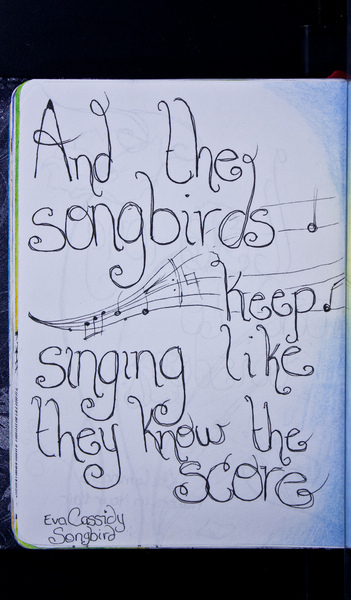 And the
songbirds
keep
singing like
they know the
score
Eva Cassidy
Songbird